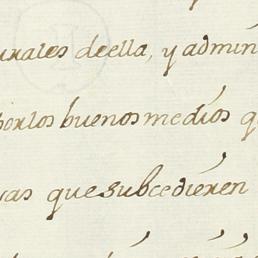 urales deella, y admin
porlos buenos medios q
vas que subcedieren